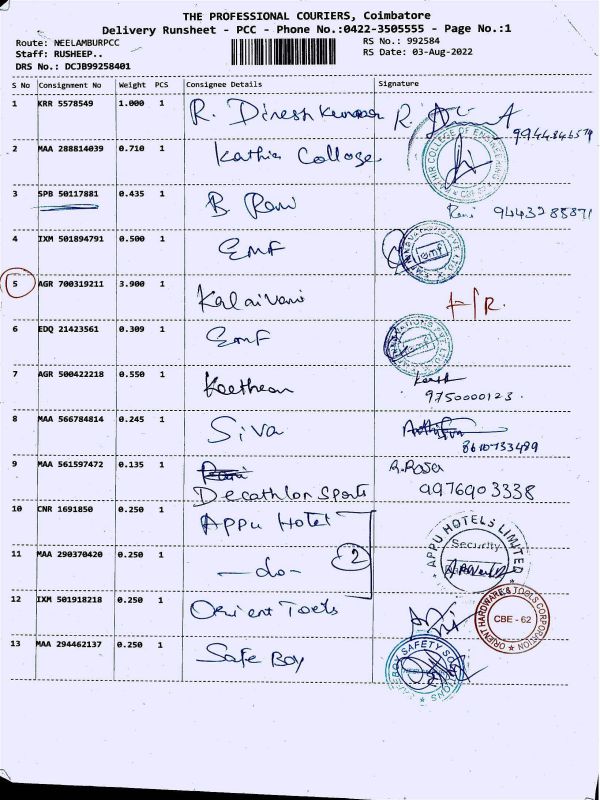 THE PROFESSIONAL COURIERS, Coimbatore
Delivery Runsheet - PCC - Phone No.:0422-3505555 - Page No.:1
Route: NEELAMBURPCC RS No.: 992584
Staff: RUSHEEP.. RS Date: 03-Aug-2022
DRS No.: DCJB99258401
S No Consignment No Weight PCS Consignee Details Signature
1 KRR 5578549 1.000 1 R. Dinesh Kumar R.
2 MAA 288814039 0.710 1 Kathir College COLLEGE OF ENGINEERING
3 SPB 50117881 0.435 1 B Rani Rani 9443288871
4 IXM 501894791 0.500 1 EMF emf
5 AGR 700319211 3.900 1 Kalaivani
6 EDQ 21423561 0.309 1 EMF
7 AGR 500422218 0.550 1 9750000123
8 MAA 566784814 0.245 1 Siva 8610733489
9 MAA 561597472 0.135 1 Decathlon Sports 9976903338
10 CNR 1691850 0.250 1 APPU HOTEL APPU HOTELS LIMITED
Security
11 MAA 290370420 0.250 1 -do- 2
12 IXM 501918218 0.250 1 Orient Tools ORIENT HARDWARE & TOOLS CORPORATION
CBE - 62
13 MAA 294462137 0.250 1 Safe Boy